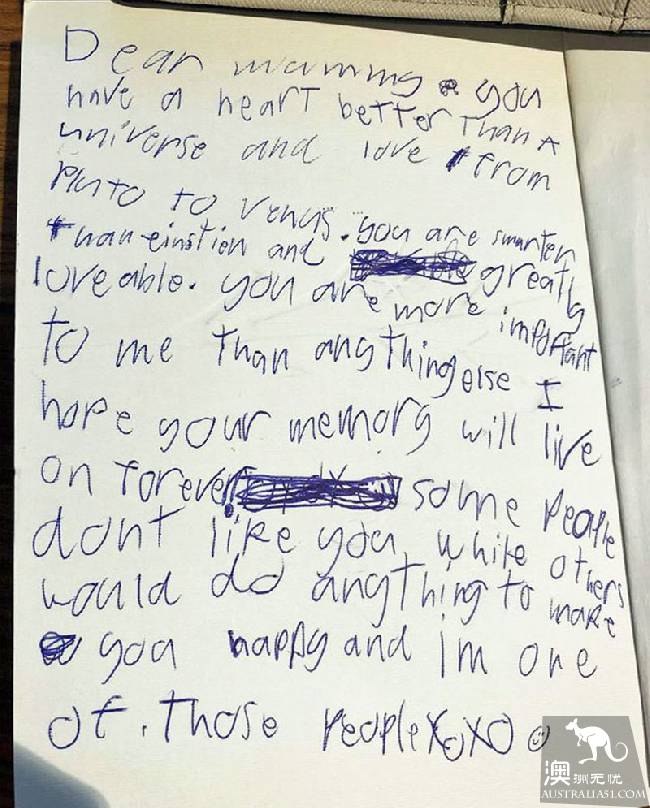 Dear mummy you
have a heart better than A
universe and love from
Pluto to venus. you are smarter
than einstion and greatly
loveable. you are more important
to me than anything else I
hope your memory will live
on forever! some people
dont like you while others
would do anything to make
you happy and im one
of. those people XoXO
澳洲无忧
AUSTRALIA51.COM